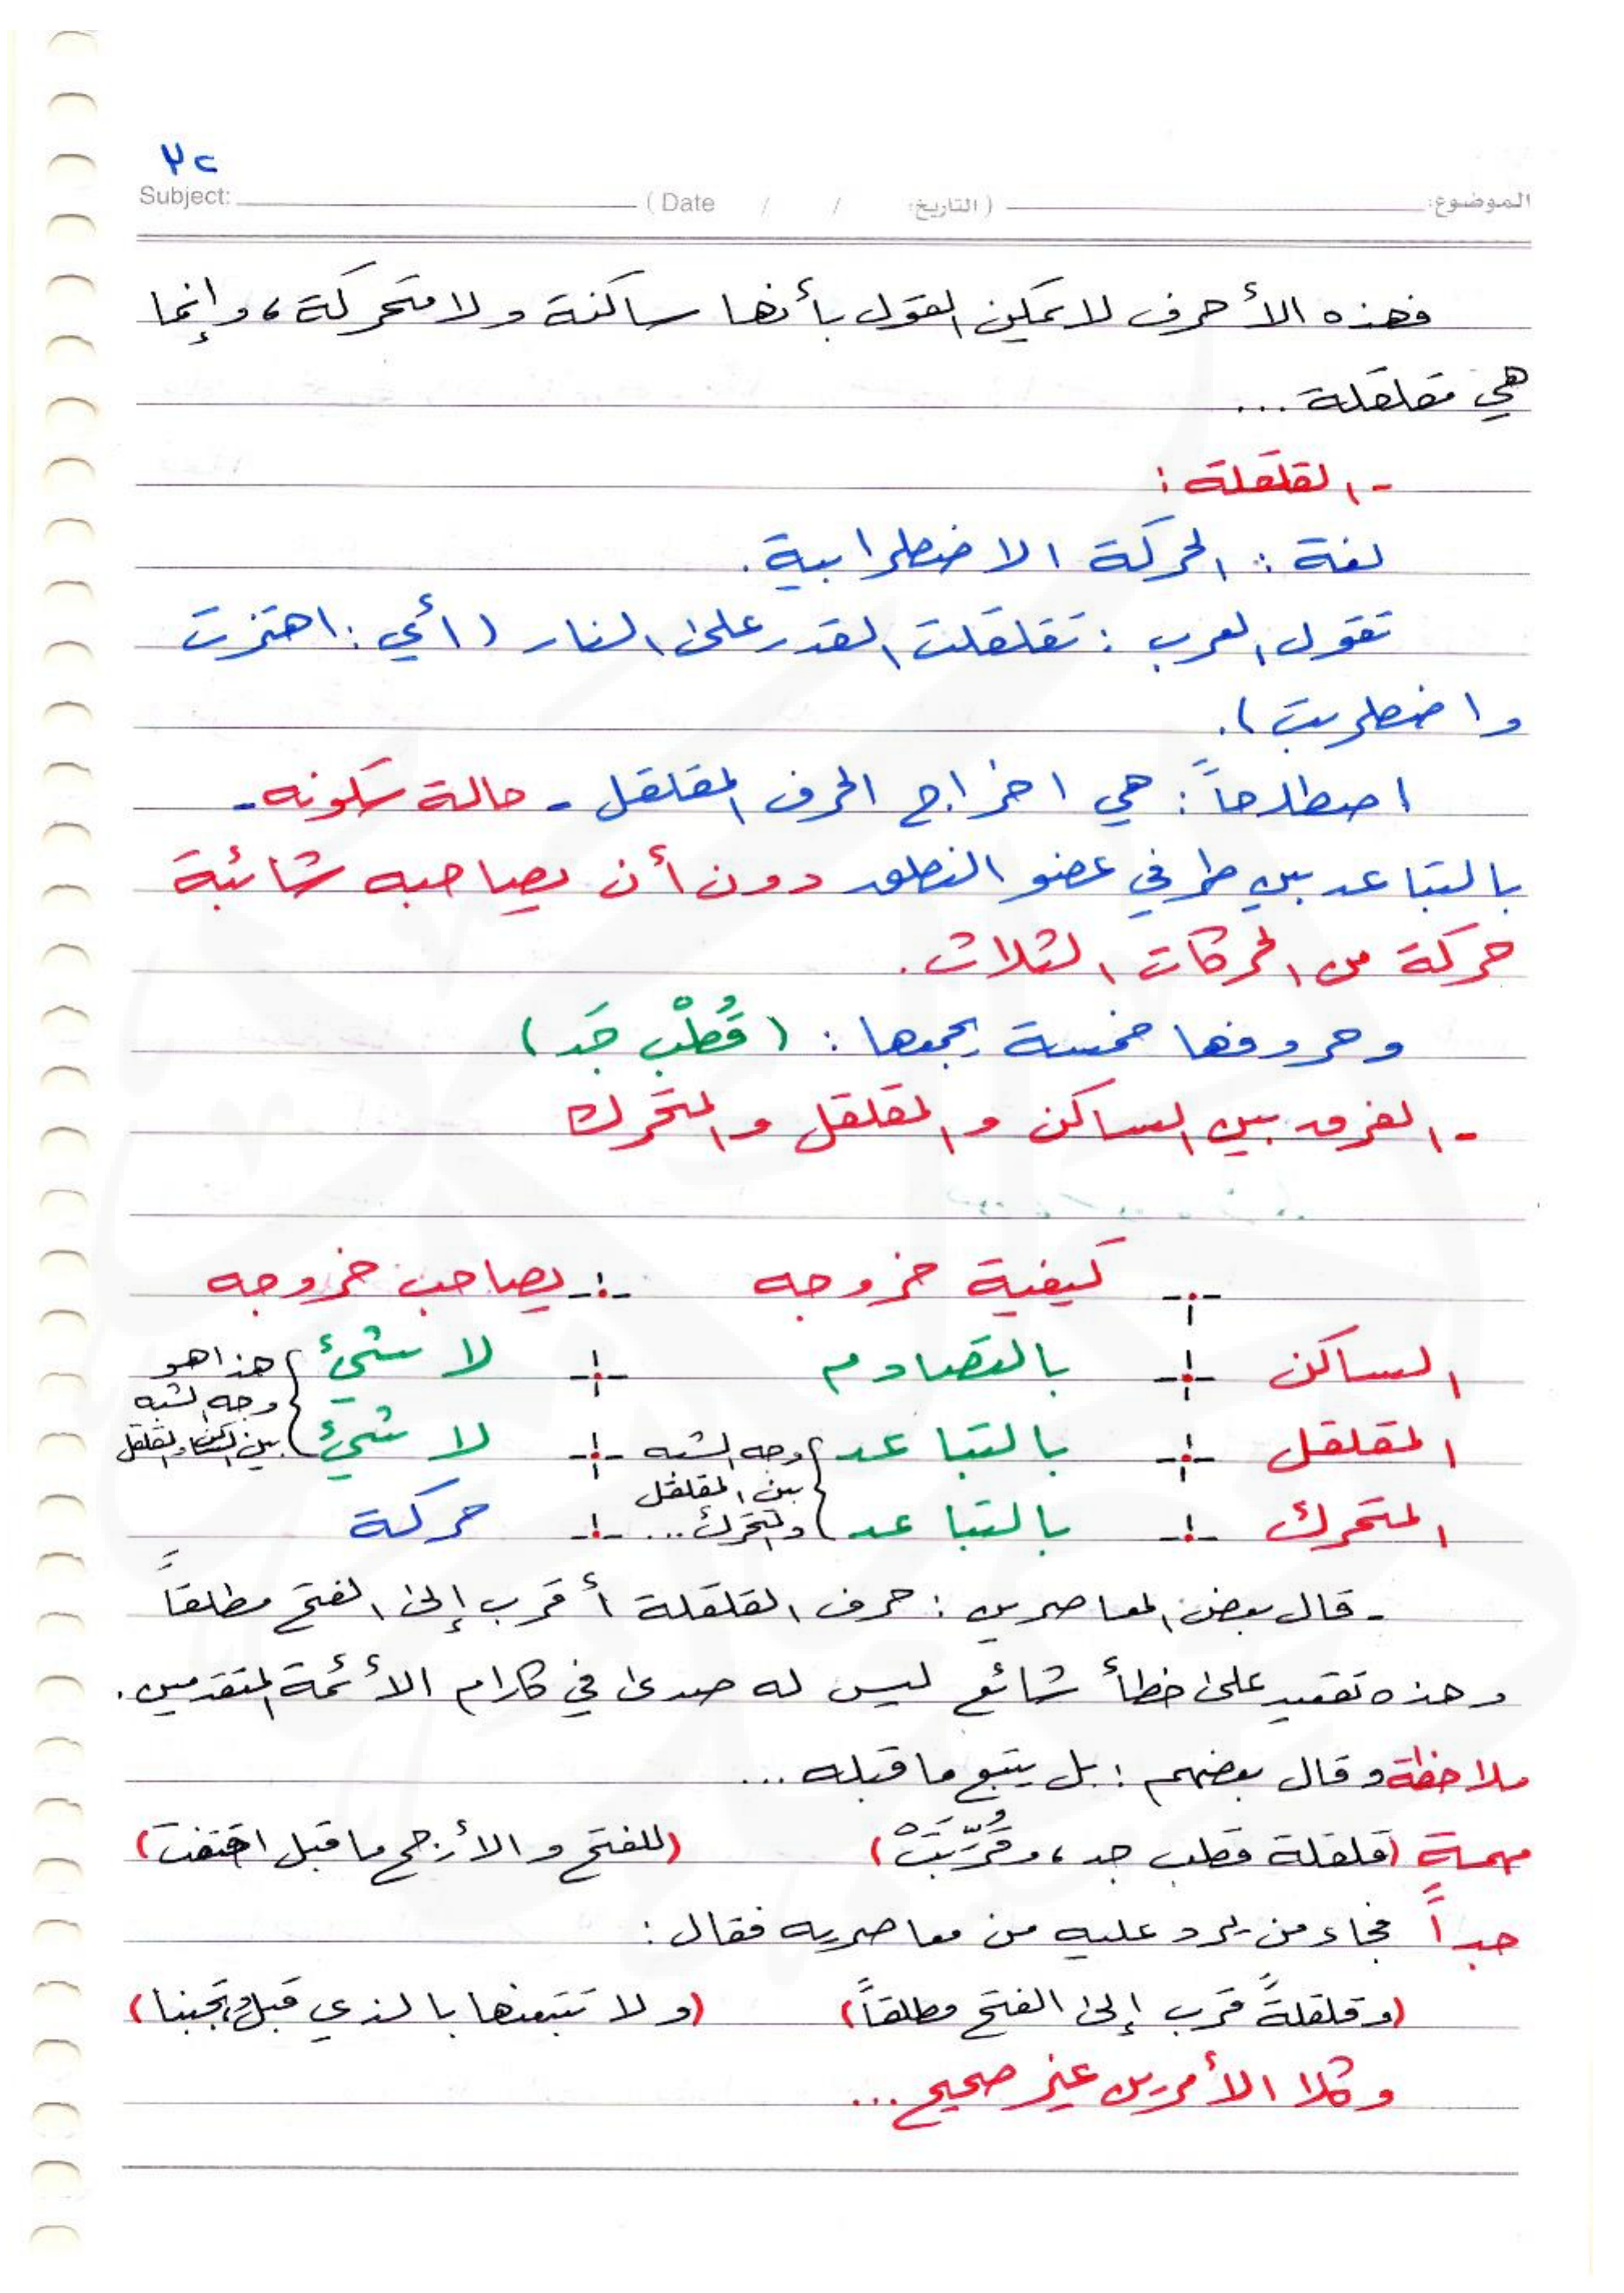 ٣٢
Subject: (Date / / التاريخ) الموضوع:
فهذه الأحرف لا يمكن القول بأنها ساكنة ولا متحركة، وإنما
هي مقلقلة ...
- القلقلة :
لغة : الحركة الاضطرابية .
تقول العرب : تقلقلت القدر على النار (أي : اهتزت
واضطربت).
اصطلاحاً : هي اخراج الحرف المقلقل - حالة سكونه -
بالتباعد بين طرفي عضو النطق دون أن يصاحبه شائبة
حركة من الحركات الثلاث .
وحروفها خمسة يجمعها : (قُطْب جَد)
- الفرق بين الساكن والمقلقل والمتحرك
كيفية خروجه يصاحب خروجه
الساكن بالتصادم لا شيئ هذا هو
وجه الشبه
المقلقل بالتباعد وجه الشبه لا شيئ بين الساكن والمقلقل
بين المقلقل
المتحرك بالتباعد والمتحرك ... حركة
- قال بعض المعاصرين : حرف القلقلة أقرب إلى الفتح مطلقاً
وهذه تقعيد على خطأ شائع ليس له صدى في كلام الأئمة المتقدمين .
ملاحظة وقال بعضهم : بل يتبع ما قبله ...
مهمة (قلقلة قطب جد، وقُرِّبَتْ) (للفتح والأرجح ما قبل اقتفت)
جداً فجاء من يرد عليه من معاصريه فقال :
(وقلقلةً قرب إلى الفتح مطلقاً) (ولا تتبعنها بالذي قبل وتجبنا)
وكلا الأمرين غير صحيح ...